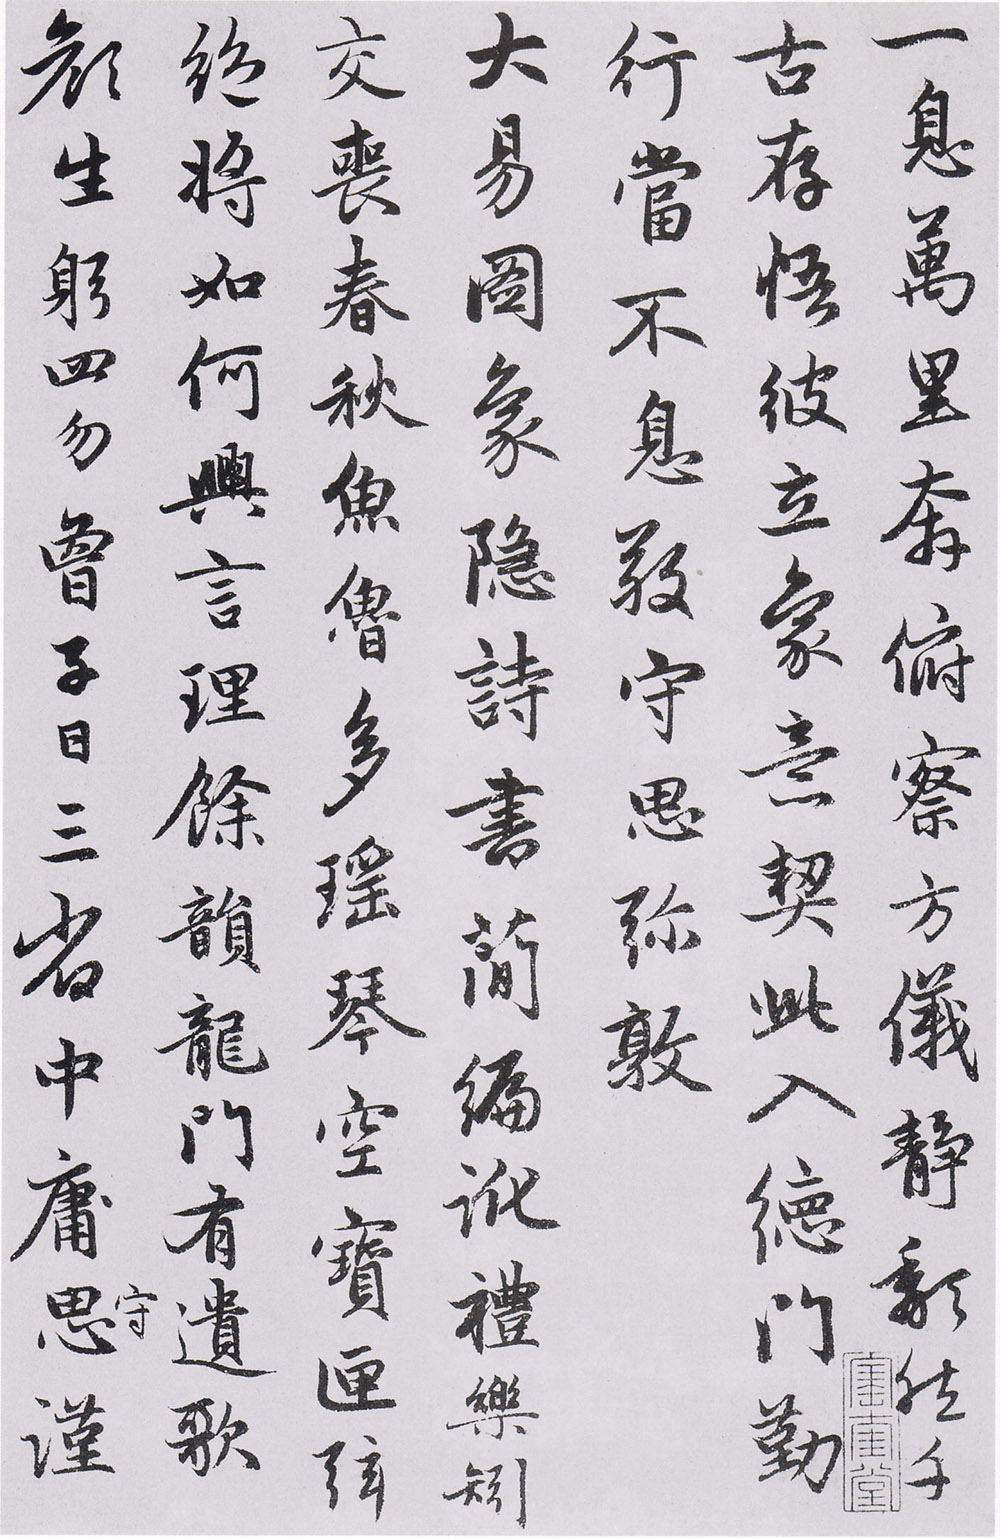 一息萬里奔俯察方儀靜頹然千
古存悟彼立象意契此入德門勤
行當不息敬守思弥敦
大易圖象隱詩書簡編訛禮樂矧
交喪春秋魚魯多瑤琴空寶匣弦
絶將如何興言理餘韻龍門有遺歌
顔生躬四勿曾子日三省中庸思謹
守